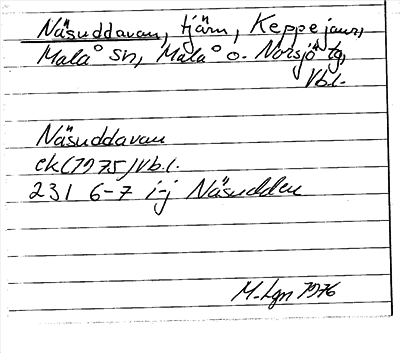 Näsuddavan, tjärn, Keppejaur,
Malå sn, Malå o. Norsjö tg,
Vb.l.
Näsuddavan
ek(1975)Vb.l.
231 6-7 i-j Näsudden
M-Lgn 1976